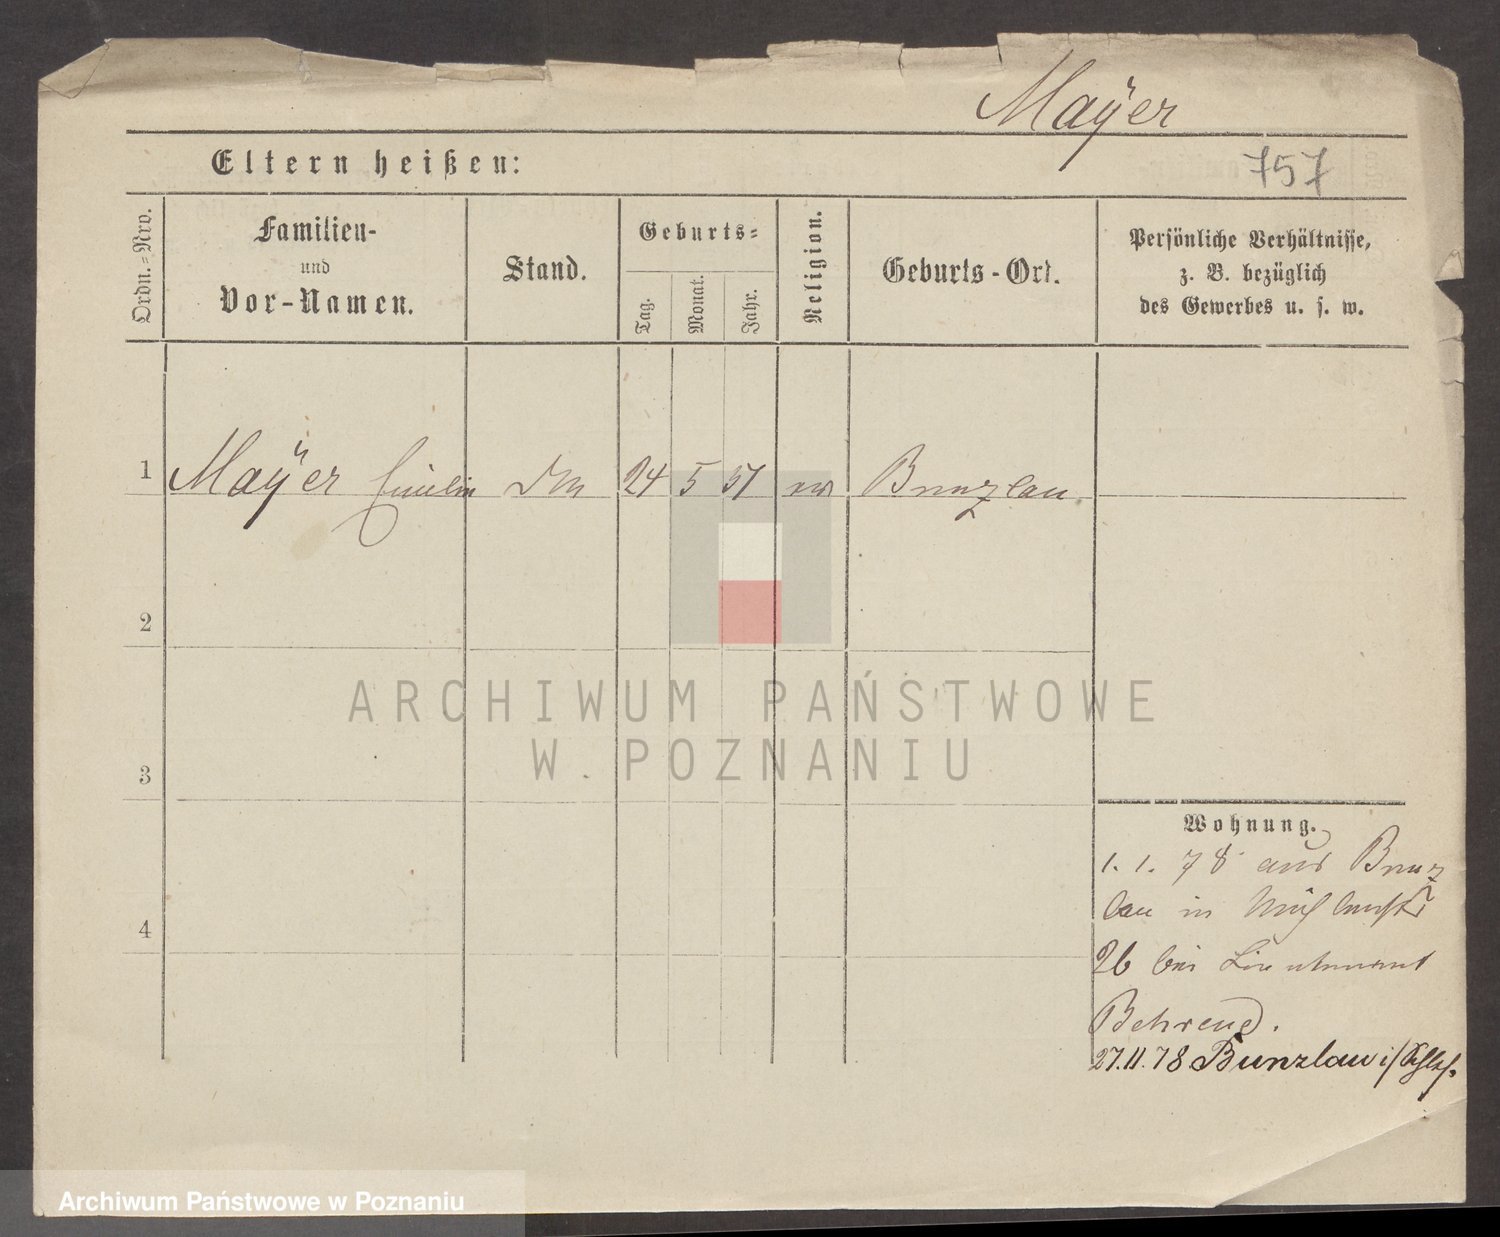 Mayer
Eltern heißen:
757
Ordn.-Nro.
Familien-
und
Vor-Namen.
Stand.
Geburts-
Tag.
Monat.
Jahr.
Religion.
Geburts-Ort.
Persönliche Verhältnisse,
z. B. bezüglich
des Gewerbes u. s. w.
1 Maÿer Emilie 24 5 57 ev Bunzlau
2
3
4
ARCHIWUM PAŃSTWOWE
W POZNANIU
Wohnung.
1. 1. 78 aus Bunz
lau in
26 bei Lieutenant
Behrend.
27.11.78 Bunzlau i/Schles.
Archiwum Państwowe w Poznaniu